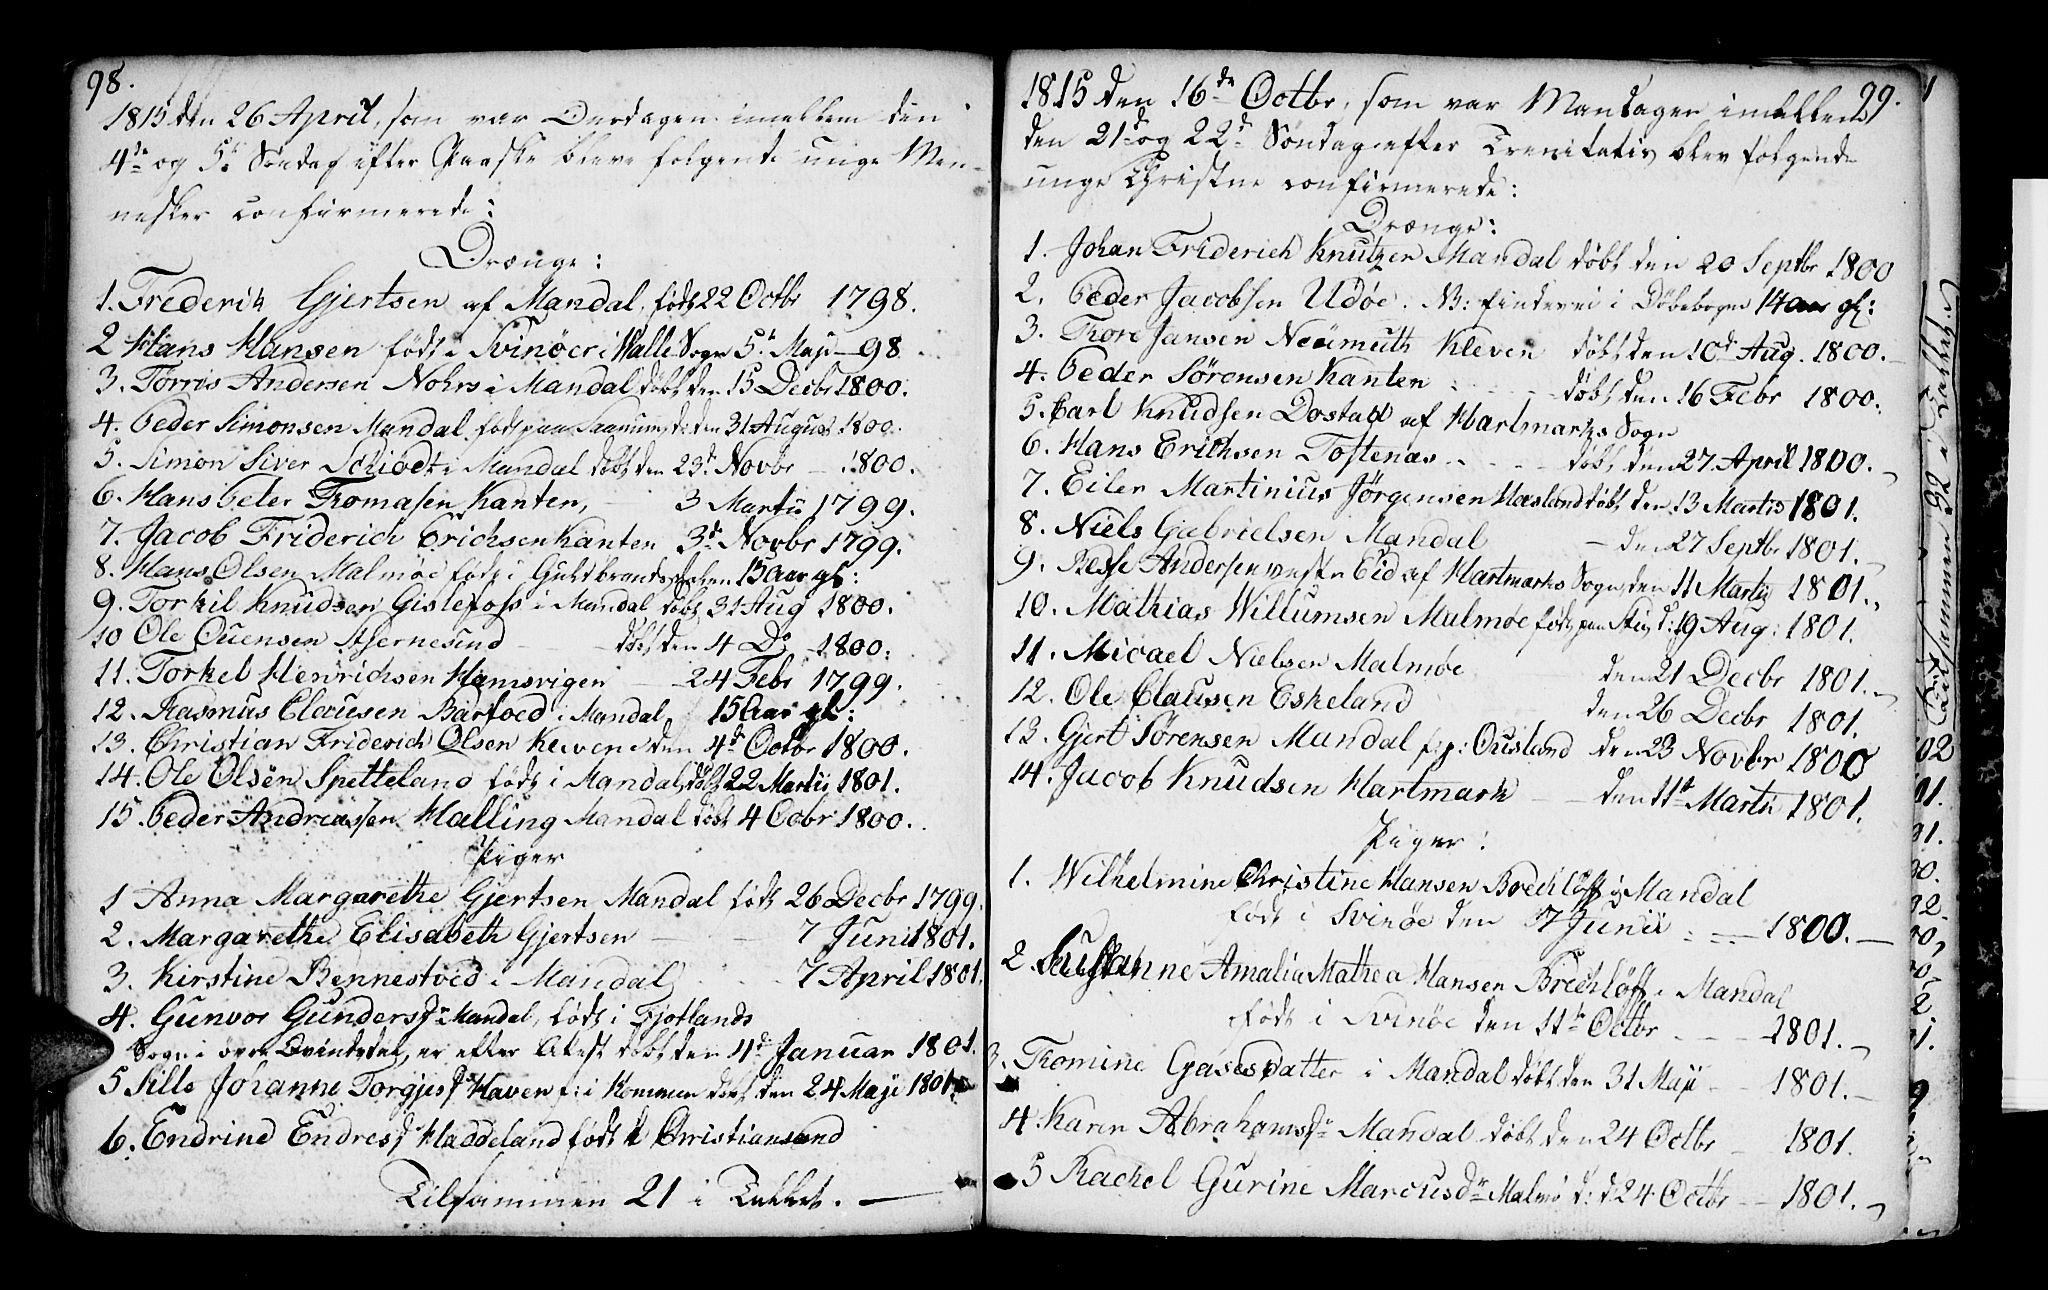 98.
1815 den 26 April, som var Onsdagen imellem den
4de og 5te Søndag efter Paaske bleve følgende unge Men-
nesker confirmerede:
Drænge:
1. Frederik Gjertsen af Mandal, født 22 Octbr 1798.
2 Hans Hansen født i Svinöer i Halle Sogn 5te Maji - 98
3. Törris Andersen Nohrs i Mandal döbt den 15 Decbr 1800.
4. Peder Simonsen Mandal født paa Saanum, d: den 31 August 1800.
5. Simon Siver Schiödt i Mandal döbt den 23d Novbr - 1800.
6. Hans Peter Thomasen Kanten, - 3 Martii 1799.
7. Jacob Friderich Erichsen Kanten 3d Novbr 1799.
8. Hans Olsen Malmöe født i Guldbrands 15 Aar gl:
9. Torkil Knudsen Gislefoss i Mandal döbt 31 Aug 1800.
10 Ole Ouensen Hernesund - döbt den 4 Do - 1800.
11. Torkel Henrichsen Hamsvigen - 24 Febr 1799.
12. Rasmus Clausen Barfoed i Mandal 15 Aar gl:
13. Christian Friderich Olsen Kleven den 4de Octbr 1800.
14. Ole Olsen Spetteland født i Mandal, döbt 22 Martii 1801.
15. Peder Andreassen Halling Mandal döbt 4 Ocbr 1800.
Piger
1 Anna Margarethe Gjertsen Mandal født 26 Decbr 1799.
2. Margarethe Elisabeth Gjertsen - - 7 Juni 1801.
3. Kirstine Bennestved i Mandal - - 7 April 1801.
4. Gunvor Gundersdr Mandal, født i Fjotlands
Sogn i övre Qvindsdal, er efter Attest döbt den 4de Januar 1801.
5 Sille Johanne Torgjusdr Haven f: i Hommen döbt den 24 Maji 1801.
6. Endrine Endresdr Haddeland født i Christiansand
Tilsammen 21 i Tallet. -
99.
1815 den 16de Octbr, som var Mandagen imellem
den 21de og 22de Søndag efter Trenitatis blev følgende
unge Christne confirmerede:
Drænge:
1. Johan Friderich Knutzen Mandal döbt den 20 Septbr 1800
2. Peder Jacobsen Udöe. NB: findes ei i Döbebogen 14 aar gl:
3. Thore Jansen Neümuth Kleven döbt den 10d Aug. 1800.
4. Peder Sörensen Kanten - döbt den 16 Febr 1800.
5. Carl Knudsen Dostad af Hartmarks Sogn
6. Hans Erichsen Toftenæs - döbt den 27 April 1800.
7. Eiler Martinius Jörgensen Hasland döbt den 13 Martis 1801.
8. Niels Gabrielsen Mandal - den 27 Septbr 1801.
9. Andersen vestre Eid af Hartmarks Sogn, den 11 Martii 1801.
10. Mathias Willumsen Malmöe født paa d: 19 Aug: 1801.
11. Micael Nielsen Malmöe den 21 Decbr 1801.
12. Ole Clausen Eskeland den 26 Decbr 1801.
13. Gjert Sörensen Mandal f: p: Ousland den 23 Novbr 1800
14. Jacob Knudsen Hartmark - den 11te Martii 1801.
Piger:
1. Wilhelmine Christine Hansen Brechlöff i Mandal
født i Svinöe den 17 Junii - 1800. -
2. Susanne Amalia Mathea Hansen Brechlöff i Mandal
født i Svinöe den 11te Octbr - 1801.
3. Thomine Gasesdatter i Mandal döbt den 31 Maji - 1801. -
4. Karen Abrahamsdr Mandal döbt den 24 Octbr - 1801.
5 Rachel Gurine Marcusdr Malmö d: d: 24 Octbr - 1801.
Tilsammen 32 i Tallet.